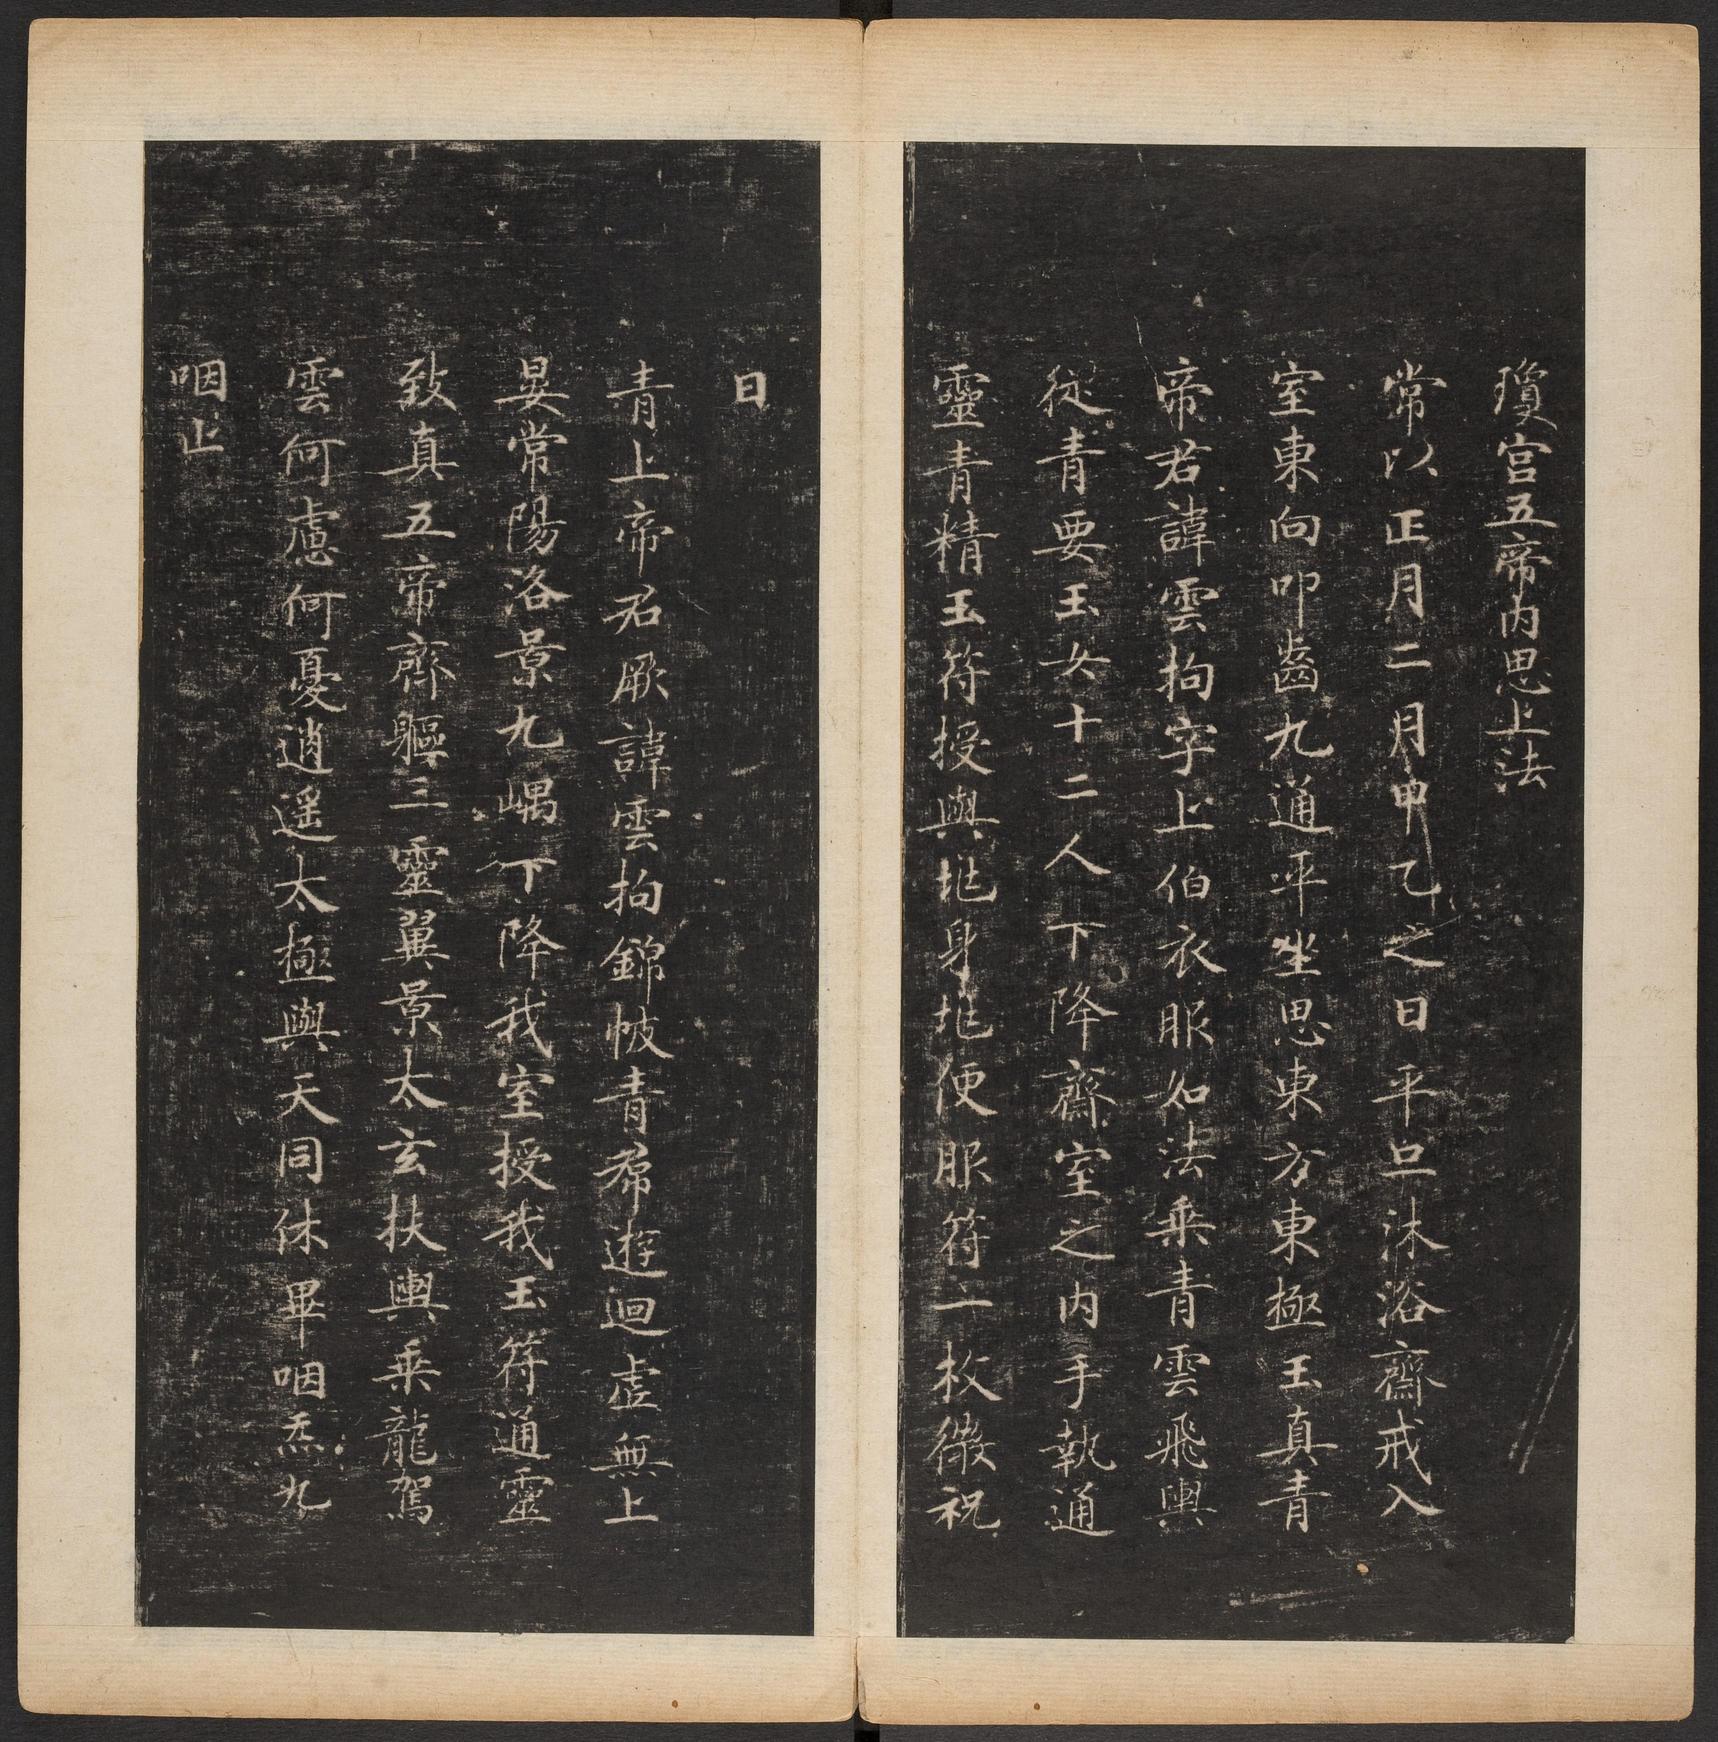 瓊宮五帝内思上法
常以正月二月甲乙之日平旦沐浴齋戒入
室東向叩齒九通平坐思東方東極玉真青
帝君諱雲拘字上伯衣服如法乗青雲飛輿
從青要玉女十二人下降齋室之内手執通
靈青精玉符授與兆身兆便服符一枚微祝
曰
青上帝君厥諱雲拘錦帔青帬遊迴虛無上
晏常陽洛景九嵎下降我室授我玉符通靈
致真五帝齊軀三靈翼景太玄扶輿乗龍駕
雲何慮何憂逍遥太極與天同休畢咽炁九
咽止